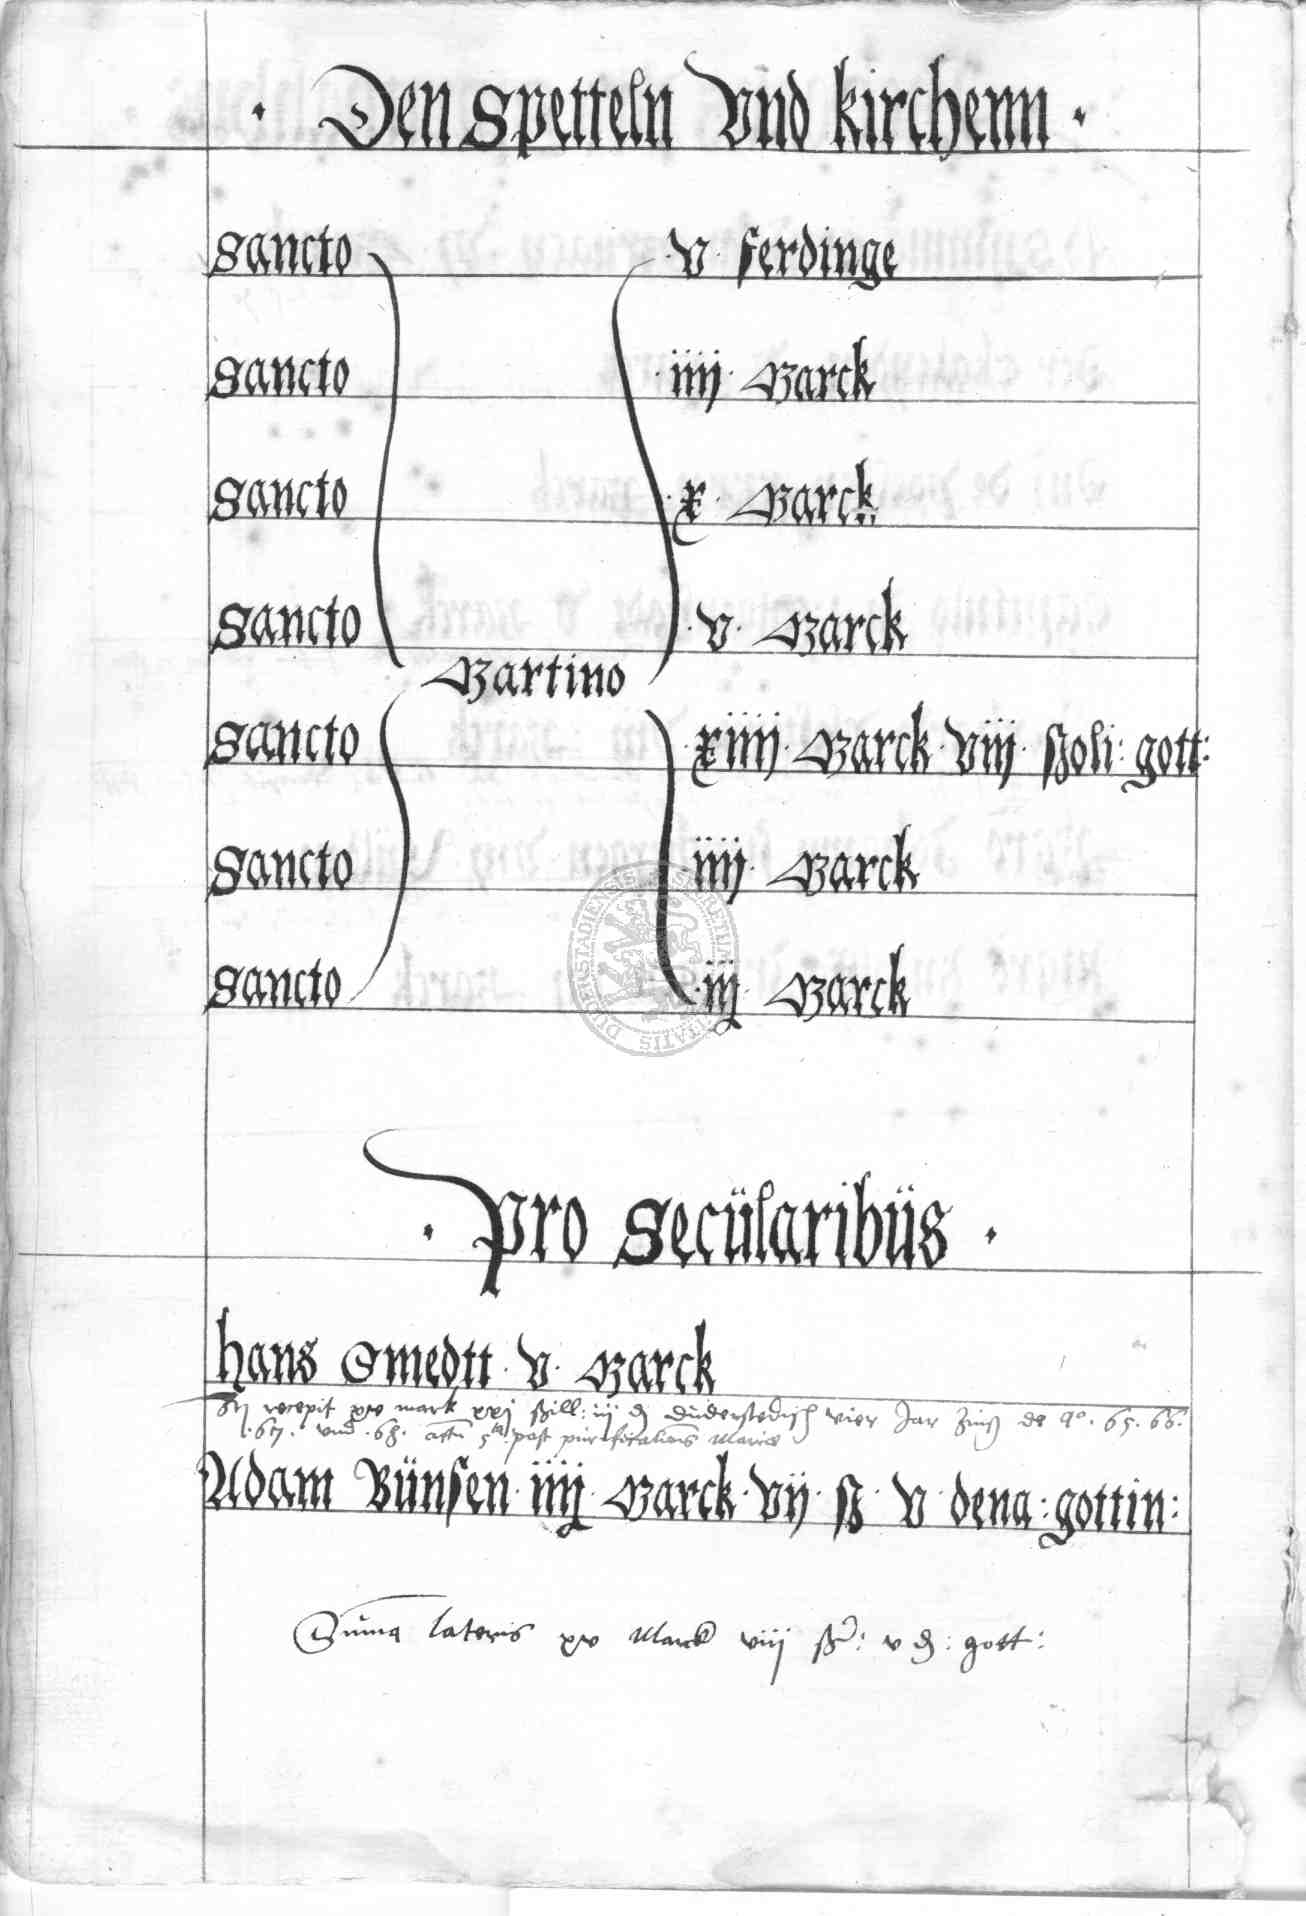 · Den Spetteln Vnd kirchenn ·
Sancto · v · ferdinge
Sancto · iiij · Marck
Sancto · x · Marck
Sancto · v · Marck
Martino
Sancto · xiiij · Marck · viij · ßoli : gott :
Sancto · iiij · Marck
Sancto · iij · Marck
· Pro Secülaribüs ·
hans Smedtt · v · Marck
recepit xv mark xxj ßill : iij d düderstedisch vier Jar Zinß de a° . 65 . 66 .
. 67 . vnd . 68 . 5ta post purificationis Mariae
Adam Bünsen · iiij · Marck · vij · ß · v · dena : gottin :
Suma lateris xv Marck viij ß : v d : gott :
SECRETUM CIVITATIS DUDERSTADIENSIS